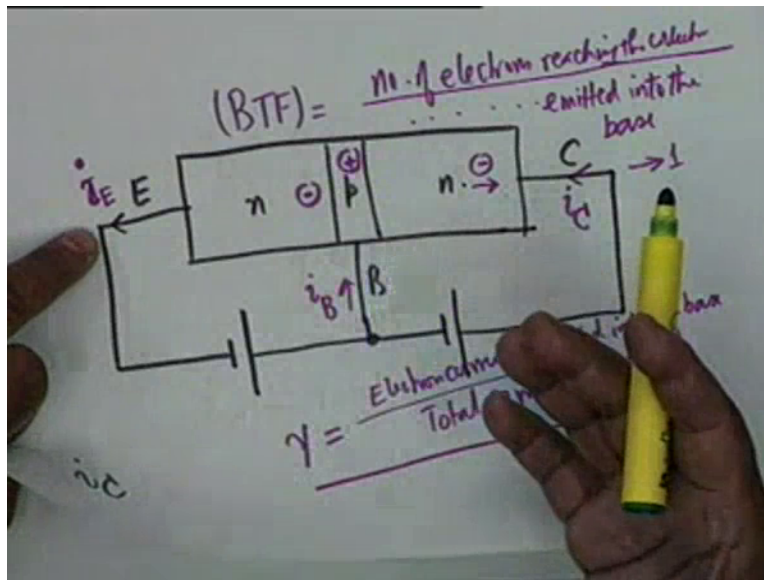 no. of electrons reaching the
(BTF) =
. . . . . . emitted into the
base
i_E E
n
⊖
⊕
p
n.
⊖
→
C
→ 1
i_C
i_B ↑ B
base
Electron
γ =
Total
i_C